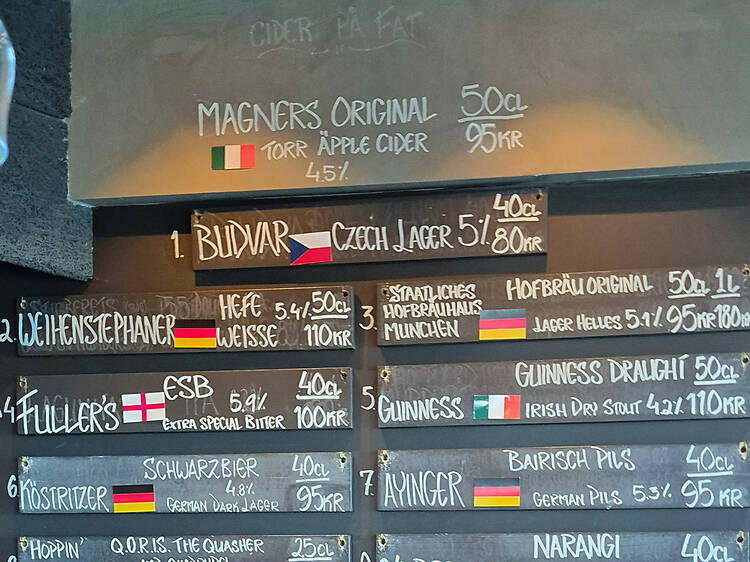 CIDER PÅ FAT
MAGNERS ORIGINAL 50CL
TORR ÄPPLE CIDER 95KR
4.5%
1. BUDVAR CZECH LAGER 5% 40CL
80KR
2. WEIHENSTEPHANER HEFE WEISSE 5.4% 50CL
110KR
3. STAATLICHES HOFBRÄUHAUS MÜNCHEN HOFBRÄU ORIGINAL 50CL 1L
LAGER HELLES 5.1% 95KR 180KR
4. FULLER'S ESB 5.9% 40CL
EXTRA SPECIAL BITTER 100KR
5. GUINNESS GUINNESS DRAUGHT 50CL
IRISH DRY STOUT 4.2% 110KR
6. KÖSTRITZER SCHWARZBIER 40CL
4.8%
GERMAN DARK LAGER 95KR
7. AYINGER BAIRISCH PILS 40CL
GERMAN PILS 5.3% 95KR
HOPPIN' Q.O.R.I.S. THE QUASHER 25CL
NARANGI 40CL